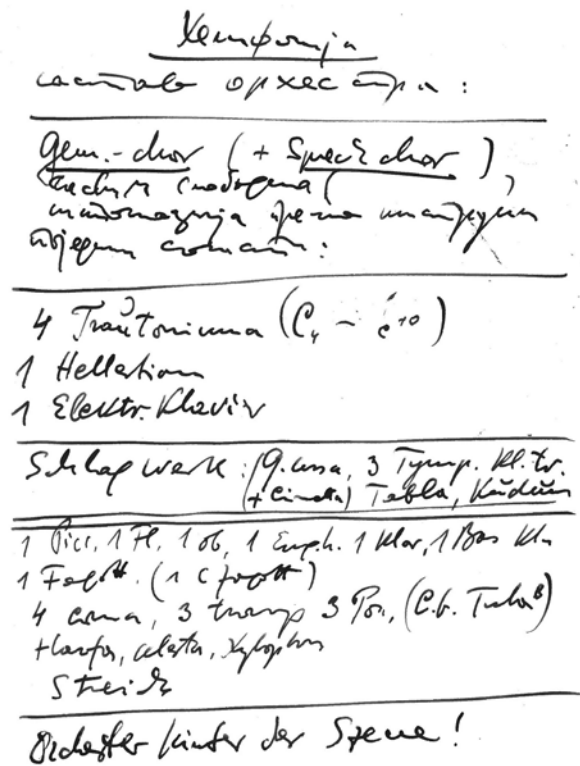 Хемфонија
састав оркестра :
Gem.-chor (+ Sprech chor)
слободна
интонација према
:
4 Trautoniuma (C₄ - c¹⁰)
1 Hellertion
1 Elektr. Klavir
Schlagwerk : (G. cassa, 3 Tymp. Kl. tr.
(+ Cinella) Tabla, Kudüm
1 Picc. 1 Fl. 1 ob, 1 Engh. 1 Klar, 1 Bas Kla
1 Fagott. (1 C fagott)
4 corna, 3 tromp 3 Pos, (C.b. Tuba B)
Harfa, celesta, Xylophon
Streich
Orchester hinter der Szene !